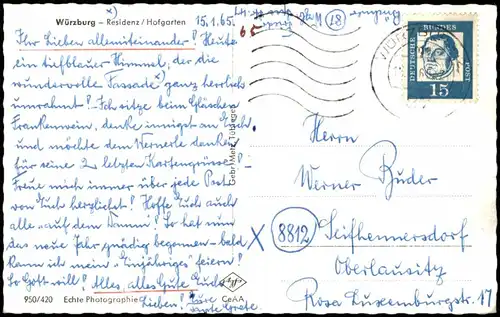 Würzburg – Residenz / Hofgarten
15.1.65.
Ihr Lieben allemiteinander! Heute
ein tiefblauer Himmel, der die
wundervolle Fassade x) ganz herrlich
umrahmt! Ich sitze beim Gläschen
Frankenwein, denke innigst an Euch
und möchte dem Wernerle danken
für seine 2 letzten Kartengrüsse!
Freue mich immer über jede Post
von Euch herzlichst! Hoffe Euch auch
alle "auf dem Damm"! So hat nun
das neue Jahr gnädig begonnen - bald
kann ich mein "Einjähriges" feiern!
So Gott will! Alles, alles Gute Euch
Lieben! Eure
Grete
950/420 Echte Photographie
CeAA
Gebr. Metz, Tübingen
65
DEUTSCHE BUNDESPOST
15
Herrn
Werner Buder
x (8812) Seifhennersdorf
Oberlausitz
Rosa Luxemburgstr. 17